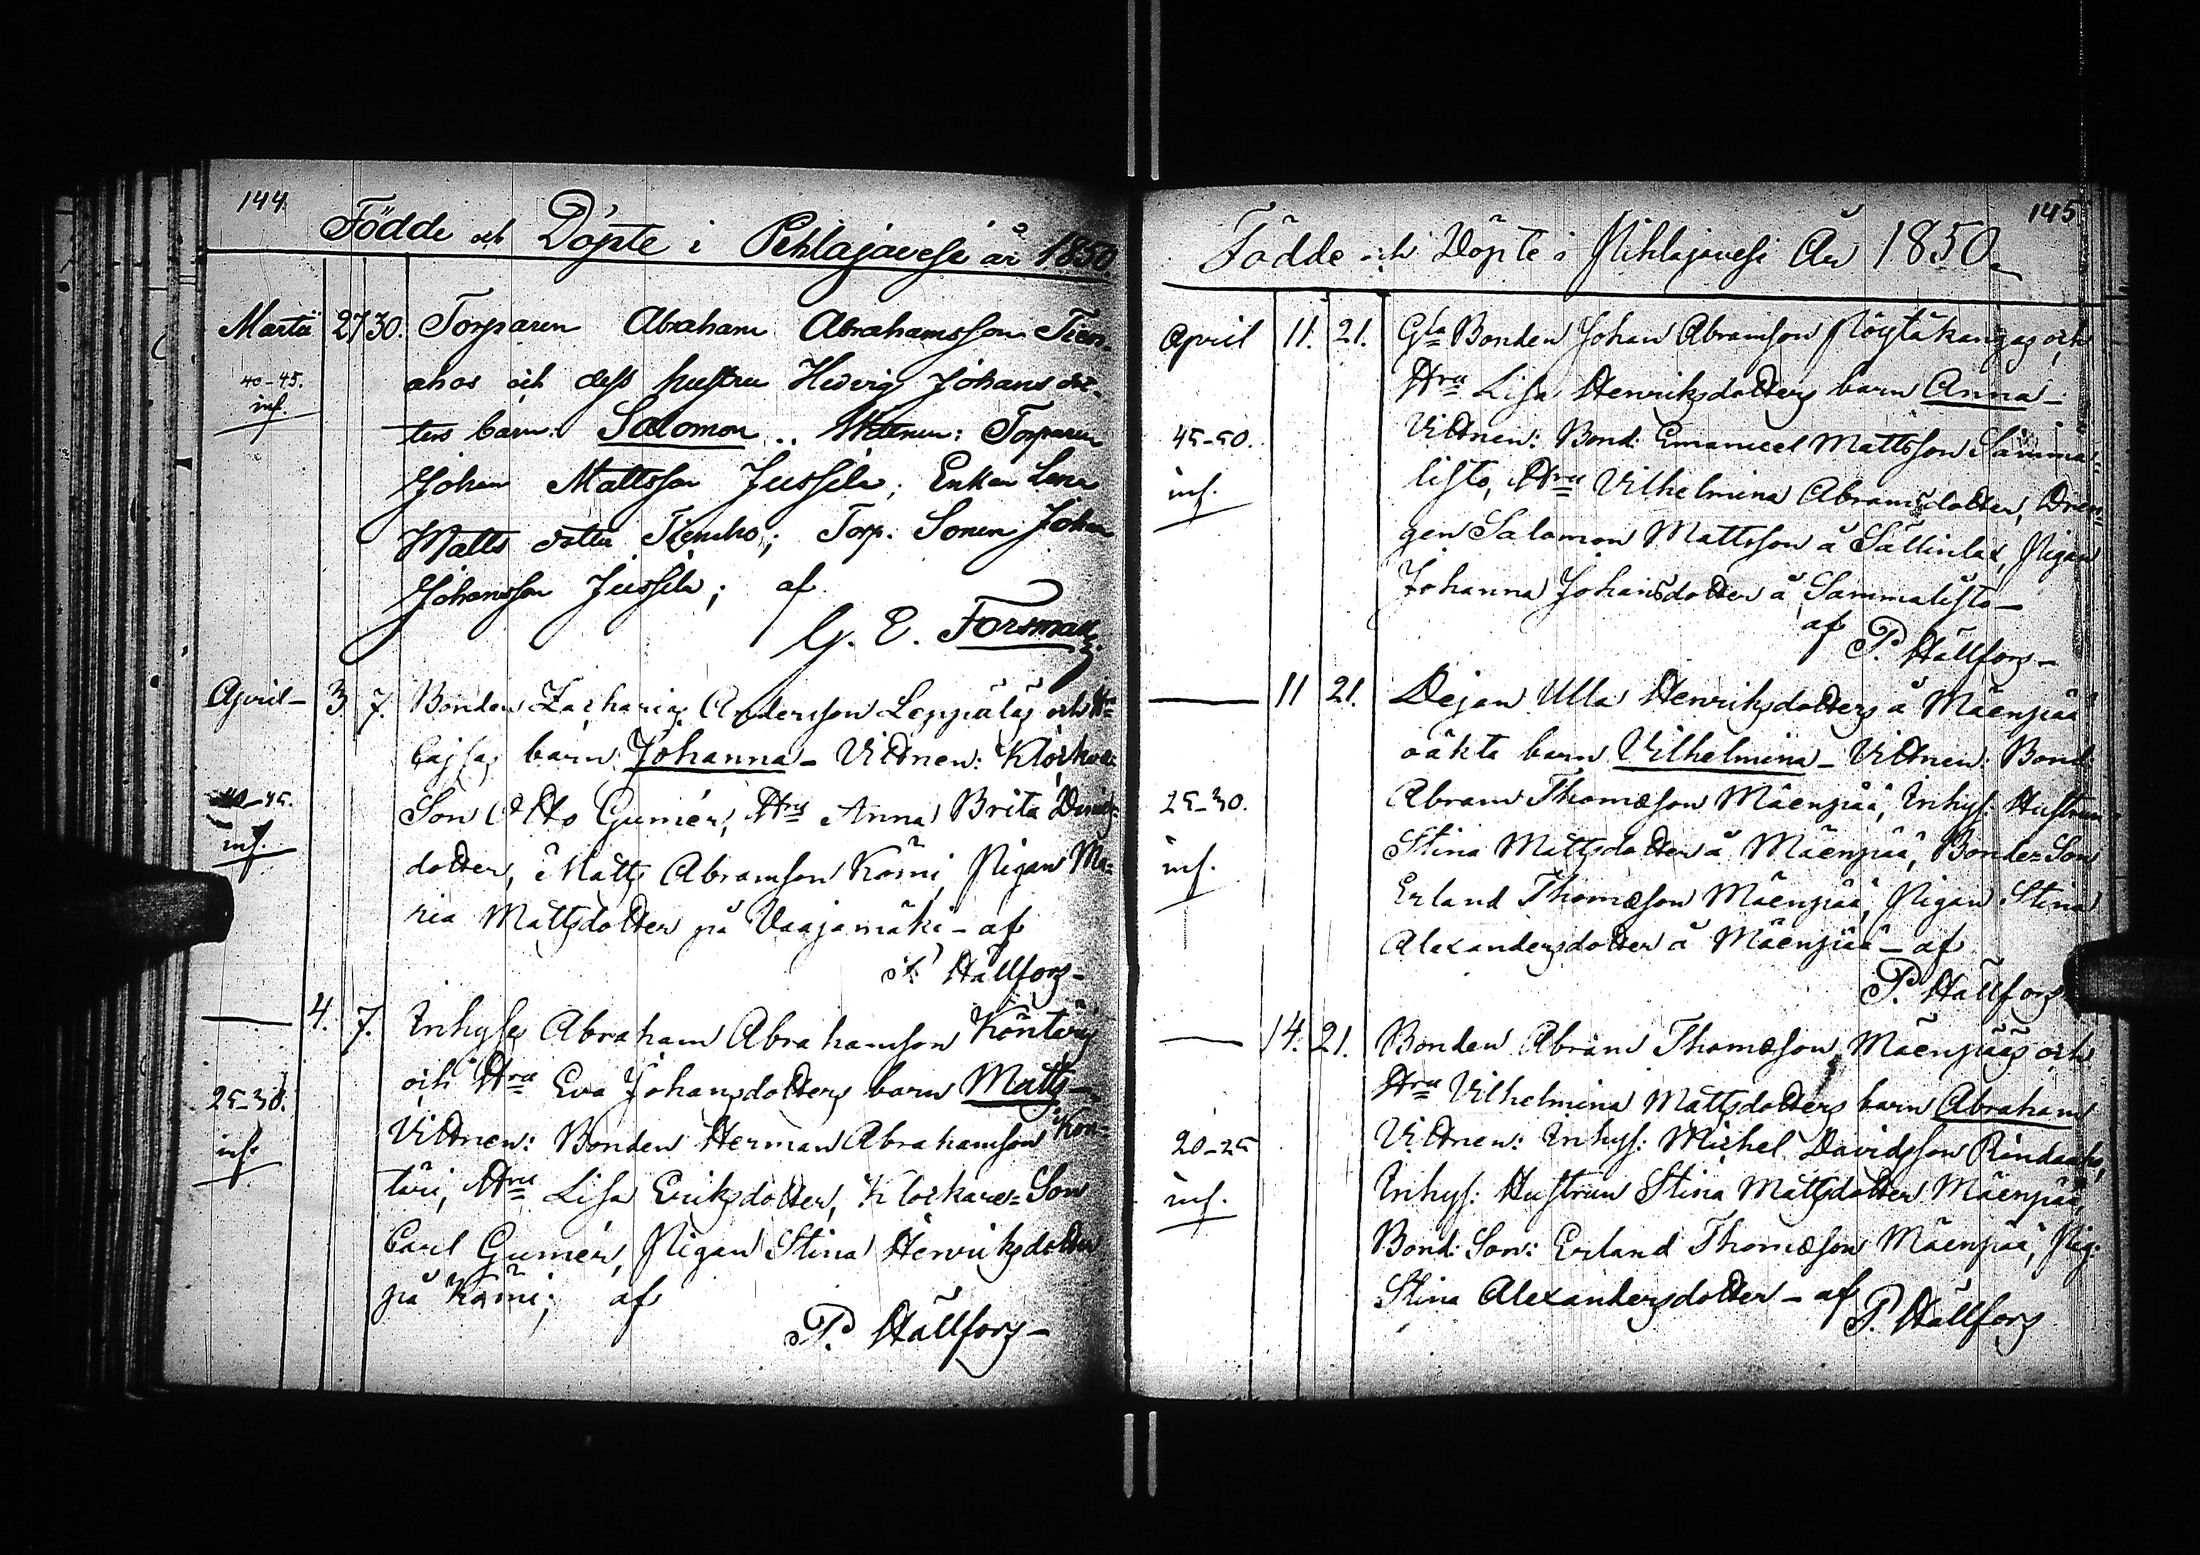 144.
Födde och Döpte i Pihlajavesi år 1850.
Martii 27 30. Torparen Abraham Abrahamsson Tien-
40-45. ahos och dess hustru Hedvig Johans dot-
inf.
ters barn: Salomon .. Vittnen: Torparen
Johan Mattsson Jussila; Enkan Lena
Matts dotter Tienaho; Torp. Sonen Johan
Johansson Jussila; af
G. E. Forsman
April - 3. 7. Bonden Zacharias Andersson Leppäläs och Hu
Cajsas barn Johanna - Vittnen: Klockare
40-45. Son Otto Gumér, Hru Anna Brita Davids-
inf. dotter, Matts Abramson Kömi, Pigan Ma-
ria Mattsdotter på Vaajamäki - af
P. Hällfors -
4. 7. Inhyses Abraham Abrahamson Köntäris
och Hru Eva Johansdotters barn Matts -
25-30. Vittnen: Bonden Herman Abrahamson Kön-
inf. täri, Hru Lisa Eriksdotter, Klockare-Son
Carl Gumér, Pigan Stina Henriksdotter
på Kömi; af
P. Hällfors -
145
Födde och Döpte i Pihlajavesi År 1850
April 11. 21. Gla Bonden Johan Abramson Pöystäkangas och
Hru Lisa Henriksdotters barn Anna -
45-50. Vittnen: Bond: Emanuel Mattsson Samma-
inf. listo, Hru Vilhelmina Abramsdotter, Dren-
gen Salomon Mattsson å Sällinlax, Pigan
Johanna Johansdotter å Sammalisto -
af P. Hällfors -
11 21. Dejan Ulla Henriksdotters å Mäenpää
oäkta barn Vilhelmina - Vittnen: Bond:
25-30. Abram Thomæson Mäenpää, Inhys: Hustrun
inf. Stina Mattsdotter å Mäenpää, Bonde Son
Erland Thomæson Mäenpää, Pigan Stina
Alexandersdotter å Mäenpää - af
P. Hällfors
14. 21. Bonden Abram Thomæson Mäenpääs och
Hru Vilhelmina Mattsdotters barn Abraham
20-25 Vittnen: Inhys: Michel Davidsson
inf. Inhys: Hustrun Stina Mattsdotter Mäenpää,
Bond: Son: Erland Thomæson Mäenpää, Pig:
Stina Alexandersdotter - af P. Hällfors